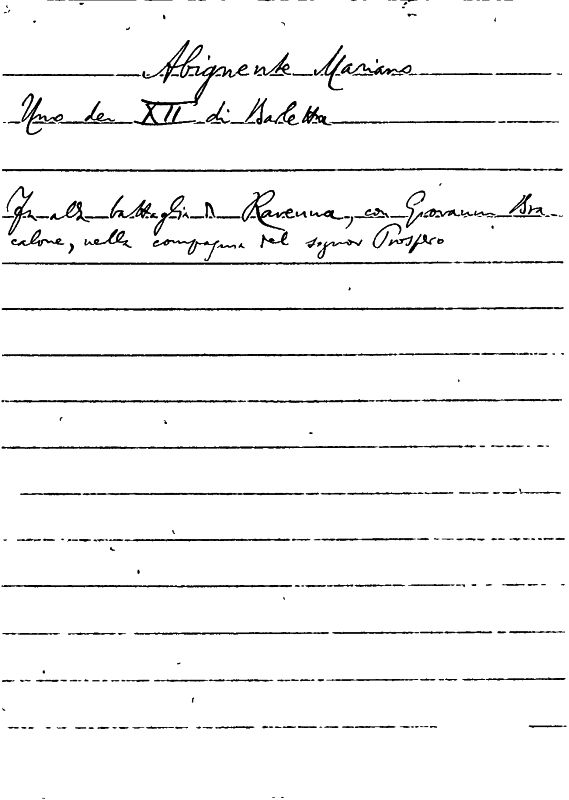 Abignente Mariano
Uno dei XII di Barletta
Fu alla battaglia di Ravenna, con Giovanni Bra
calone, nella compagnia del signor Prospero